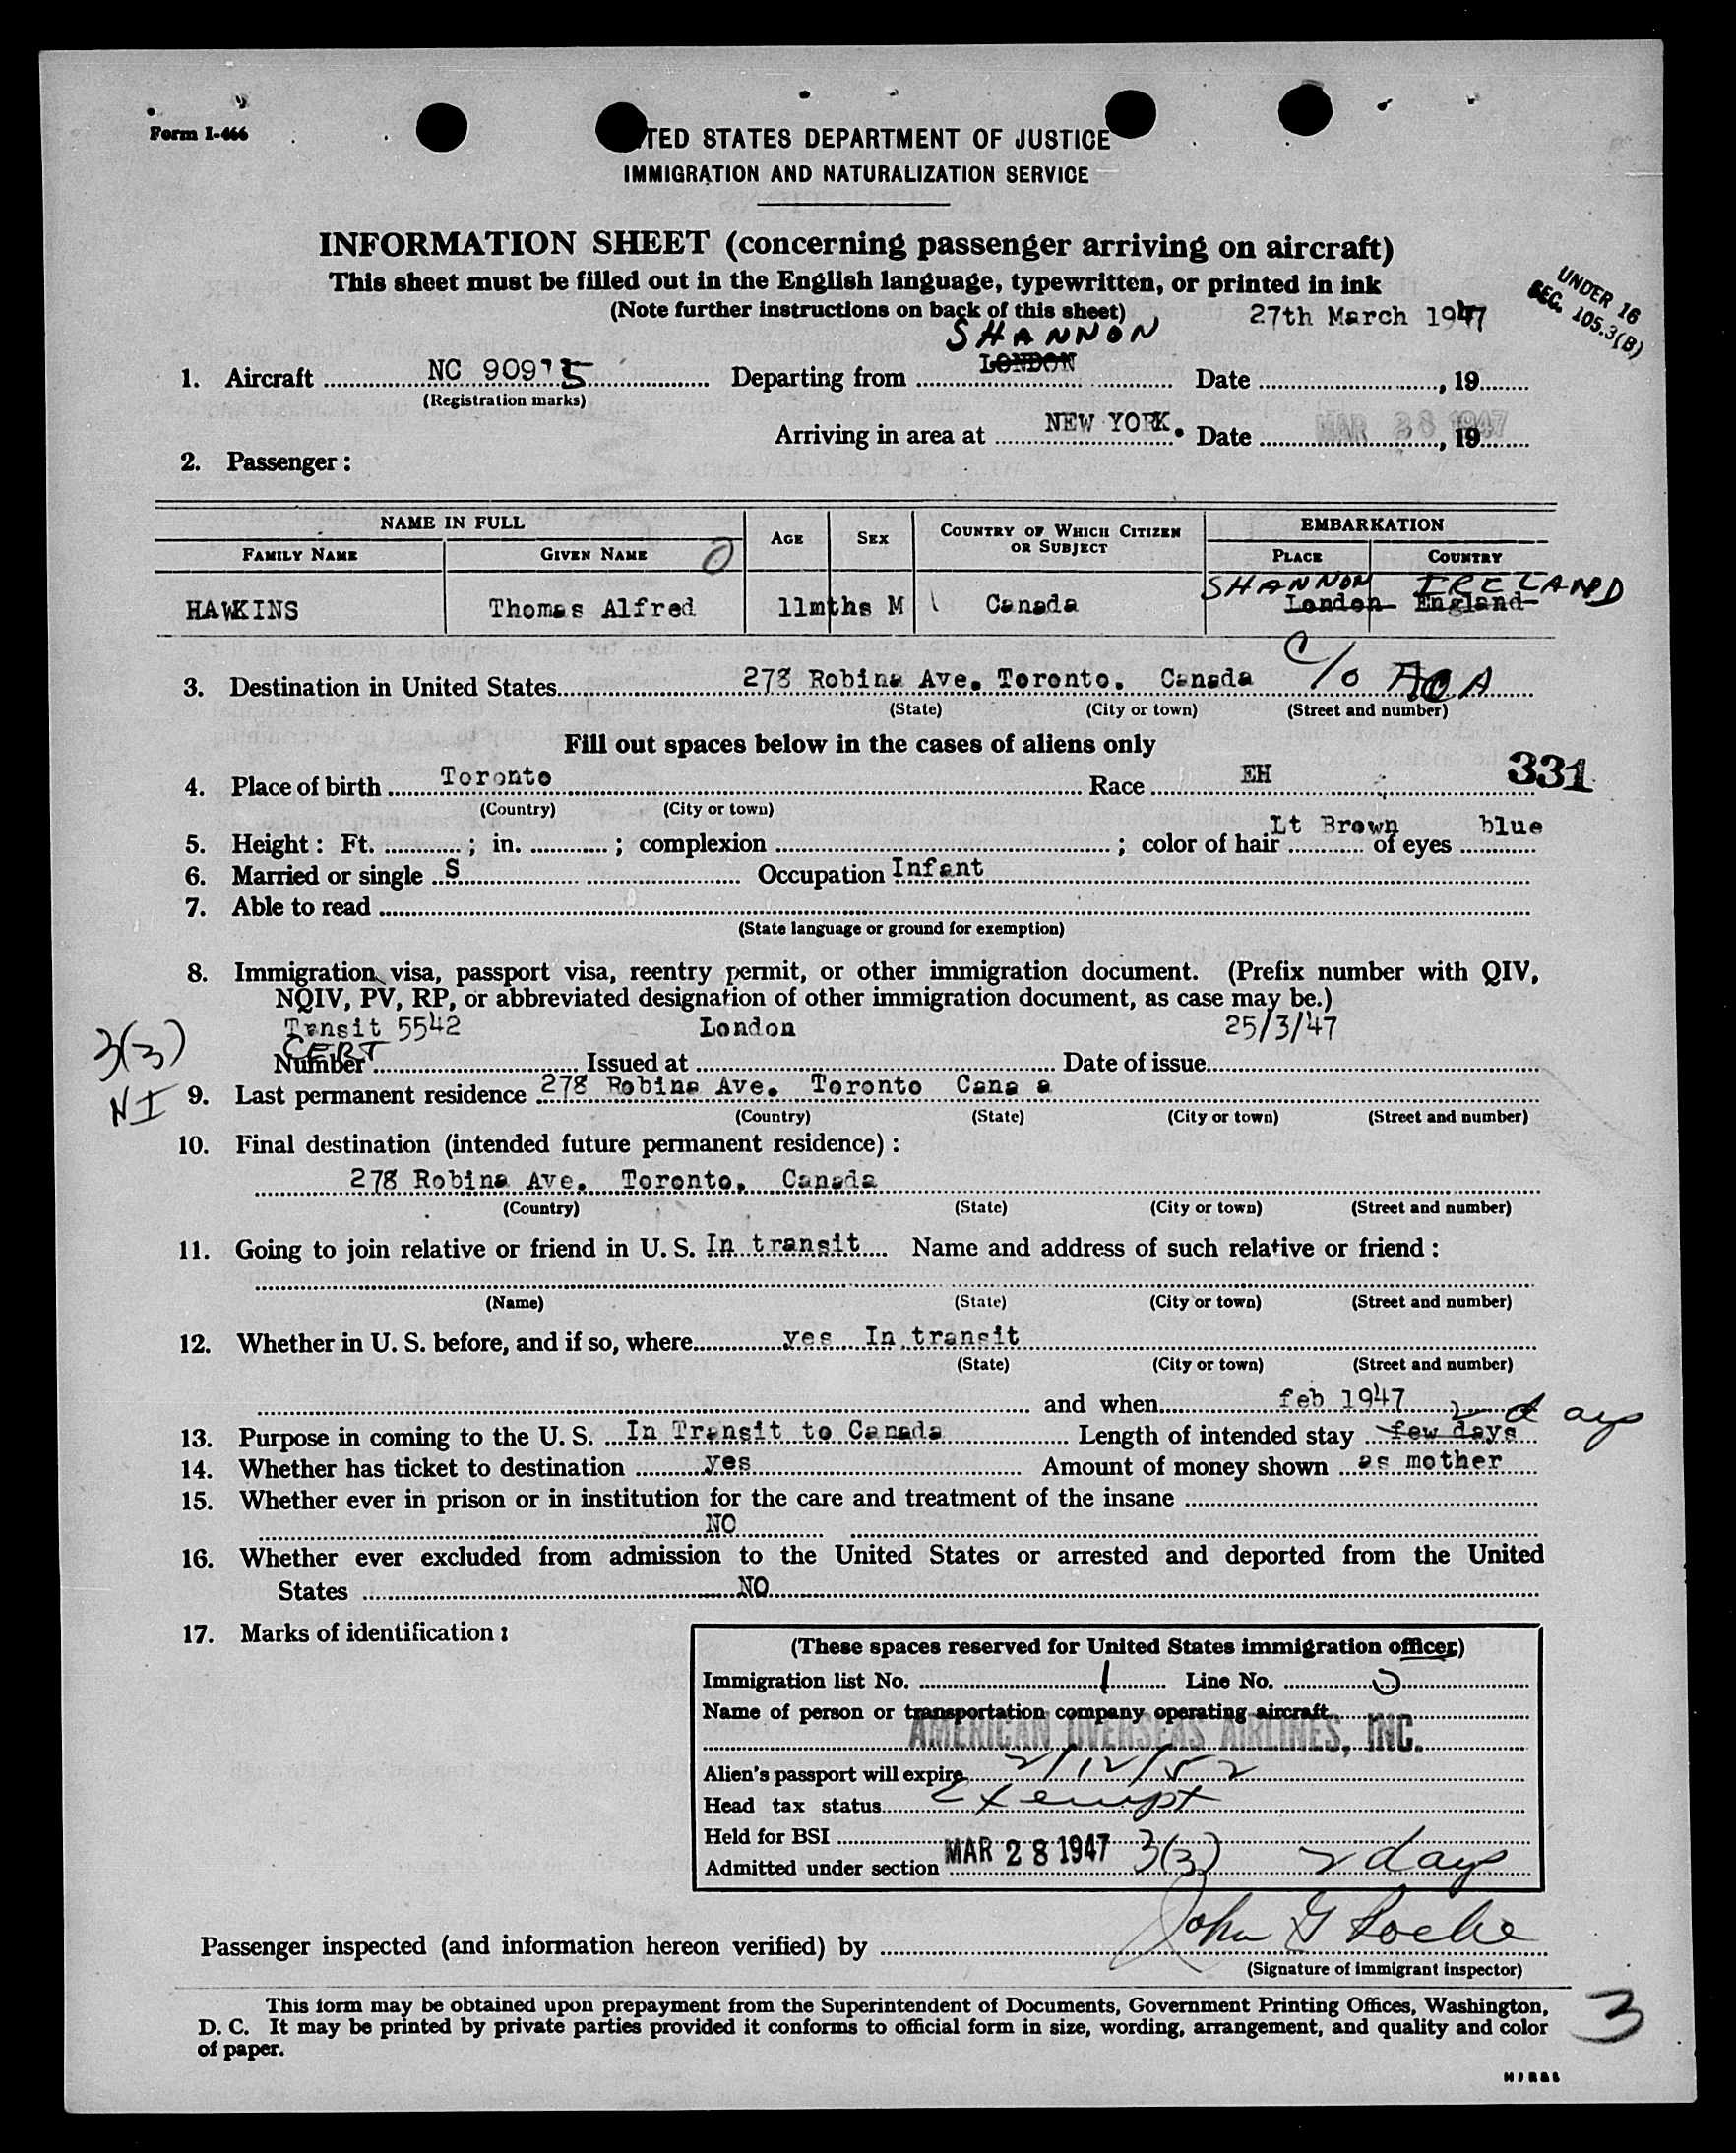 Form I-466
TED STATES DEPARTMENT OF JUSTICE
IMMIGRATION AND NATURALIZATION SERVICE
INFORMATION SHEET (concerning passenger arriving on aircraft)
This sheet must be filled out in the English language, typewritten, or printed in ink
(Note further instructions on back of this sheet)
27th March 1947
UNDER 16
SEC. 105.3(B)
SHANNON
1. Aircraft NC 90915 Departing from LONDON Date , 19
(Registration marks)
Arriving in area at NEW YORK. Date MAR 28 1947, 19
2. Passenger:
NAME IN FULL AGE SEX COUNTRY OF WHICH CITIZEN OR SUBJECT EMBARKATION
FAMILY NAME GIVEN NAME PLACE COUNTRY
SHANNON IRELAND
HAWKINS Thomas Alfred 11mths M Canada London England
3. Destination in United States 278 Robina Ave. Toronto. Canada C/O AOA
(State) (City or town) (Street and number)
Fill out spaces below in the cases of aliens only
331
4. Place of birth Toronto Race EH
(Country) (City or town)
5. Height: Ft. ; in. ; complexion ; color of hair Lt Brown of eyes blue
6. Married or single S Occupation Infant
7. Able to read
(State language or ground for exemption)
8. Immigration visa, passport visa, reentry permit, or other immigration document. (Prefix number with QIV,
NQIV, PV, RP, or abbreviated designation of other immigration document, as case may be.)
3(3) Trnsit 5542 London 25/3/47
CERT
Number Issued at Date of issue
NI
9. Last permanent residence 278 Robina Ave. Toronto Cana a
(Country) (State) (City or town) (Street and number)
10. Final destination (intended future permanent residence):
278 Robina Ave. Toronto. Canada
(Country) (State) (City or town) (Street and number)
11. Going to join relative or friend in U. S. In transit Name and address of such relative or friend:
(Name) (State) (City or town) (Street and number)
12. Whether in U. S. before, and if so, where yes In transit
(State) (City or town) (Street and number)
and when feb 1947
2 days
13. Purpose in coming to the U. S. In Transit to Canada Length of intended stay few days
14. Whether has ticket to destination yes Amount of money shown as mother
15. Whether ever in prison or in institution for the care and treatment of the insane
NO
16. Whether ever excluded from admission to the United States or arrested and deported from the United
States NO
17. Marks of identification:
(These spaces reserved for United States immigration officer)
Immigration list No. 1 Line No.
Name of person or transportation company operating aircraft
AMERICAN OVERSEAS AIRLINES, INC.
Alien's passport will expire 2/12/52
Head tax status Exempt
Held for BSI
Admitted under section MAR 28 1947 3(3) 2 days
Passenger inspected (and information hereon verified) by John G Roche
(Signature of immigrant inspector)
This form may be obtained upon prepayment from the Superintendent of Documents, Government Printing Offices, Washington,
D. C. It may be printed by private parties provided it conforms to official form in size, wording, arrangement, and quality and color
of paper.
3